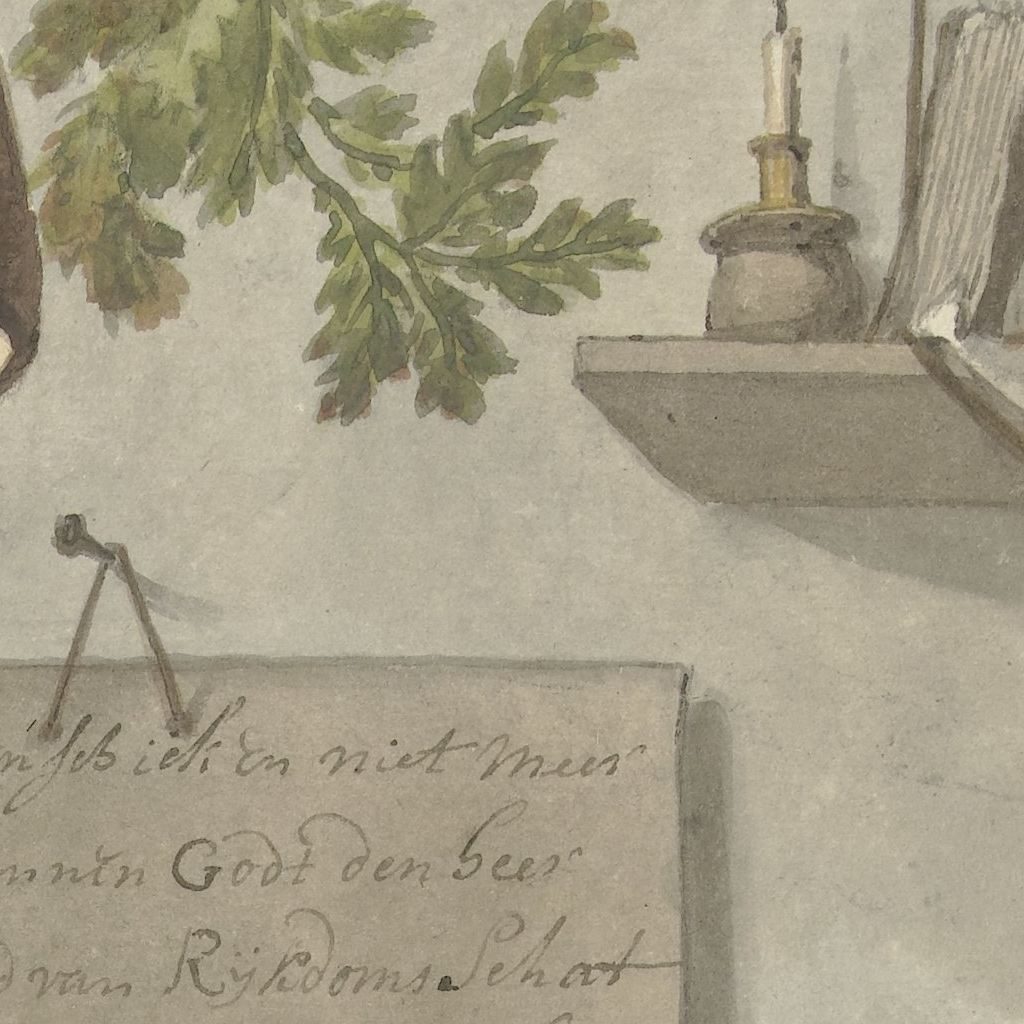 ick en niet meer
Godt den heer
van Rijkdoms Schat